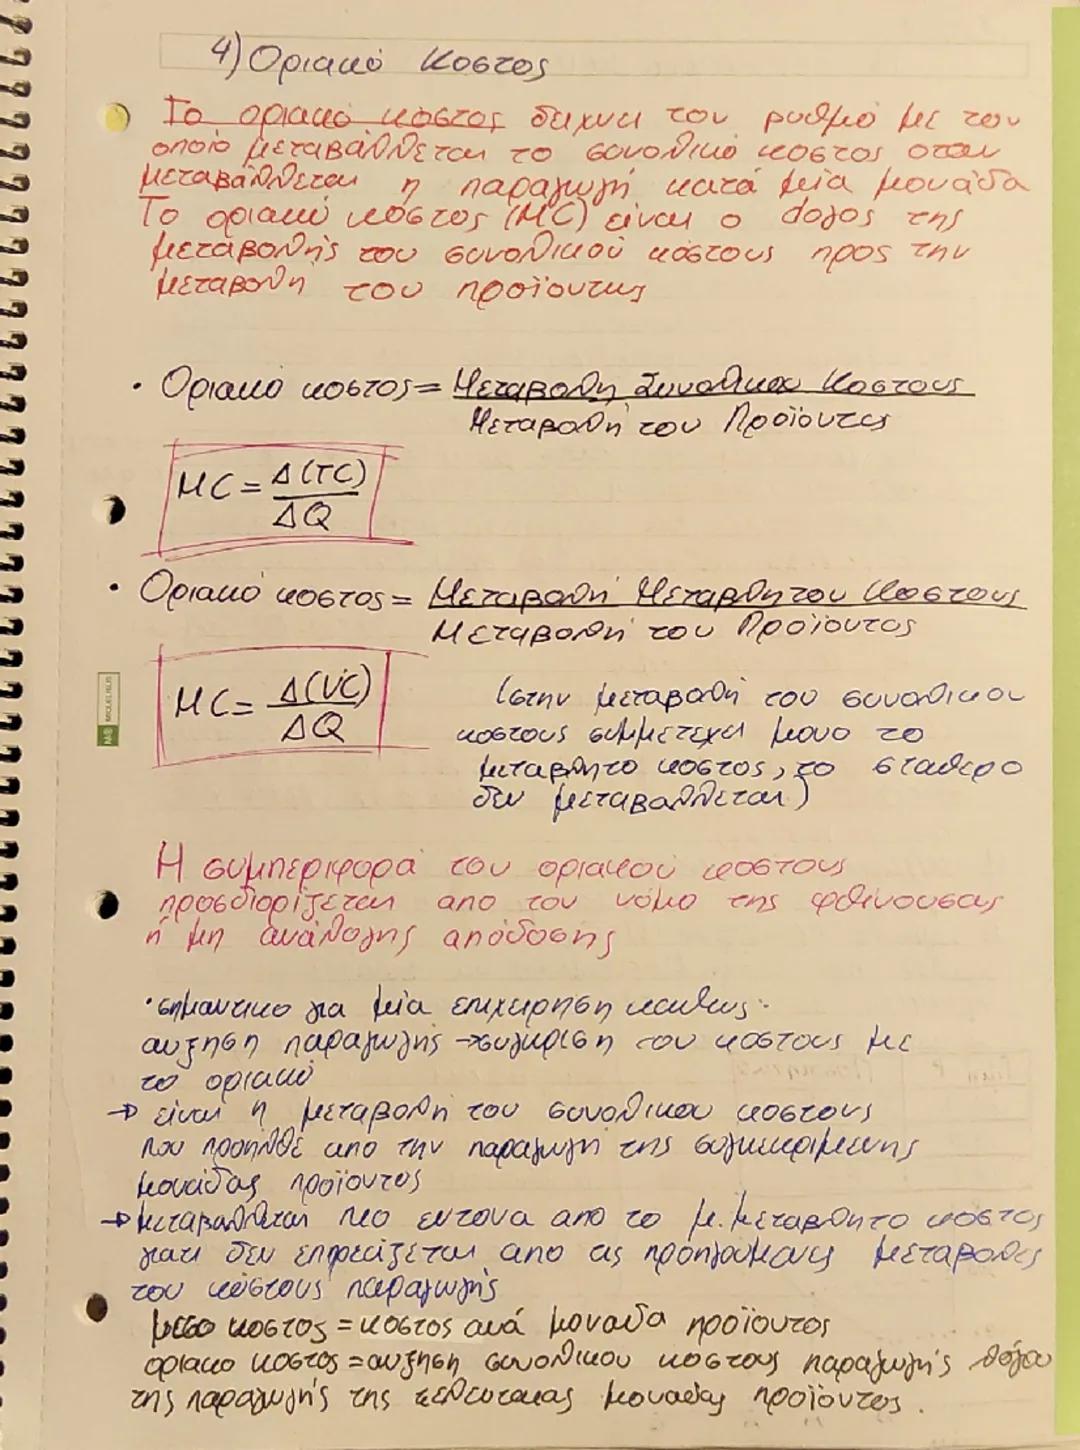 4) Οριακό Κόστος
Το οριακό κόστος δείχνει τον ρυθμό με τον
οποίο μεταβάλλεται το συνολικό κόστος όταν
μεταβάλλεται η παραγωγή κατά μία μονάδα
Το οριακό κόστος (MC) είναι ο λόγος της
μεταβολής του συνολικού κόστους προς την
μεταβολή του προϊόντως
• Οριακό κόστος = Μεταβολή Συνολικου Κόστους
Μεταβολή του Προϊόντως
MC = Δ(TC)
ΔQ
• Οριακό κόστος = Μεταβολή Μεταβλητου Κόστους
Μεταβολή του Προϊόντος
MC = Δ(VC)
ΔQ
(στην μεταβολή του συνολικού
κοστους συμμετεχει μονο το
μεταβλητο κοστος, το σταθερο
δεν μεταβαλλεται)
Η συμπεριφορά του οριακού κόστους
προσδιορίζεται απο τον νόμο της φθίνουσας
ή μη ανάλογης απόδοσης
• σημαντικο για μία επιχειρηση καθως:
αυξηση παραγωγής → συγκριση του κοστους με
το οριακό
→ είναι η μεταβολή του συνολικου κοστους
που προηλθε απο την παραγωγή της συγκεκριμενης
μονάδας προϊοντος
→ μεταβαλλεται πιο εντονα απο το μ. μεταβλητο κόστος
γιατι δεν επηρεάζεται απο τις προηγουμενες μεταβολες
του κόστους παραγωγής
μεσο κοστος = κοστος ανά μοναδα προϊοντος
οριακο κοστος = αυξηση συνολικου κοστους παραγωγής λόγω
της παραγωγής της τελευταιας μοναδας προϊοντος.